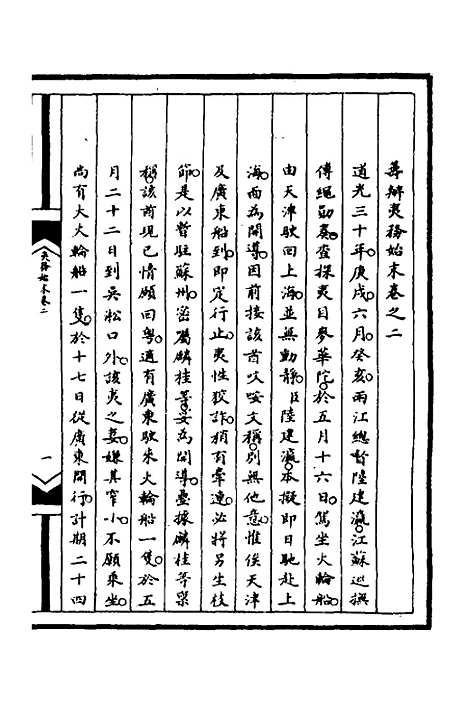 籌辦夷務始末卷之二
道光三十年庚戌六月癸亥兩江總督陸建瀛江蘇巡撫
傅繩勛奏查探夷目麥華陀於五月十六日駕坐火輪船
由天津駛回上海並無動靜臣陸建瀛本擬即日馳赴上
海面為開導因前接該酋咬𠺕文稱別無他意惟俟天津
及廣東船到即定行止夷性狡詐稍有牽連必將另生枝
節是以暫駐蘇州密屬麟桂等妥為開導疊據麟桂等稟
稱該酋現已情願回粵適有廣東駛來火輪船一隻於五
月二十二日到吳淞口外該夷之妻嫌其窄小不願乘坐
尚有大火輪船一隻於十七日從廣東開行計期二十四
夷務始末卷二
一